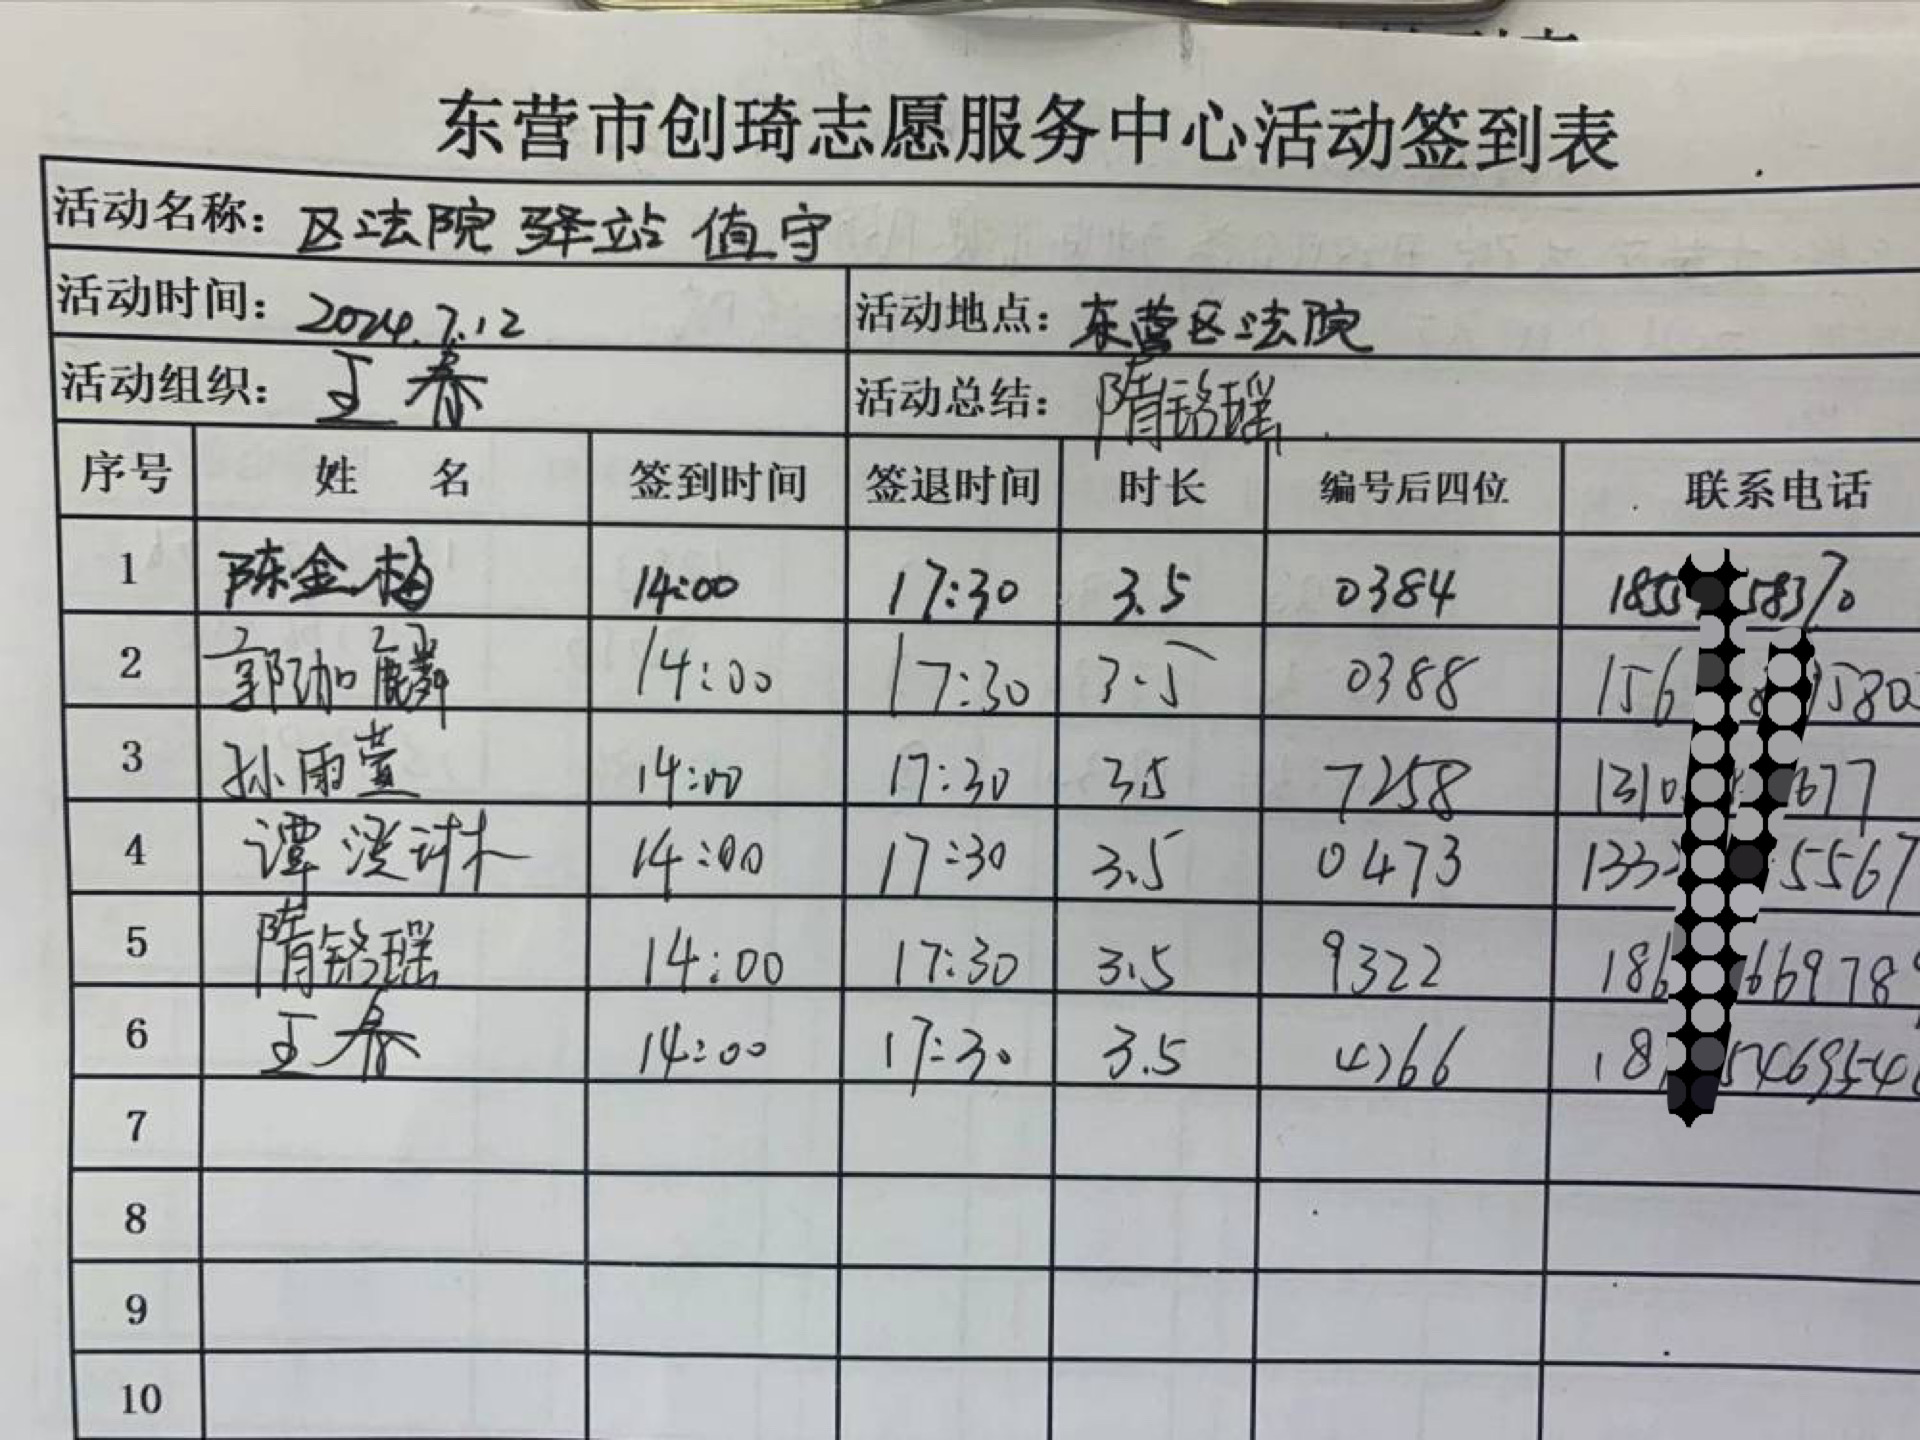 东营市创琦志愿服务中心活动签到表
活动名称：区法院驿站值守
活动时间：2024.7.12 活动地点：东营区法院
活动组织：王春 活动总结：隋铭瑶
序号 姓 名 签到时间 签退时间 时长 编号后四位 联系电话
1 陈金梅 14:00 17:30 3.5 0384
2 郭珈麟 14:00 17:30 3.5 0388
3 孙雨萱 14:00 17:30 3.5 7258
4 谭滢 14:00 17:30 3.5 0473
5 隋铭瑶 14:00 17:30 3.5 9322
6 王春 14:00 17:30 3.5 4766
7
8
9
10